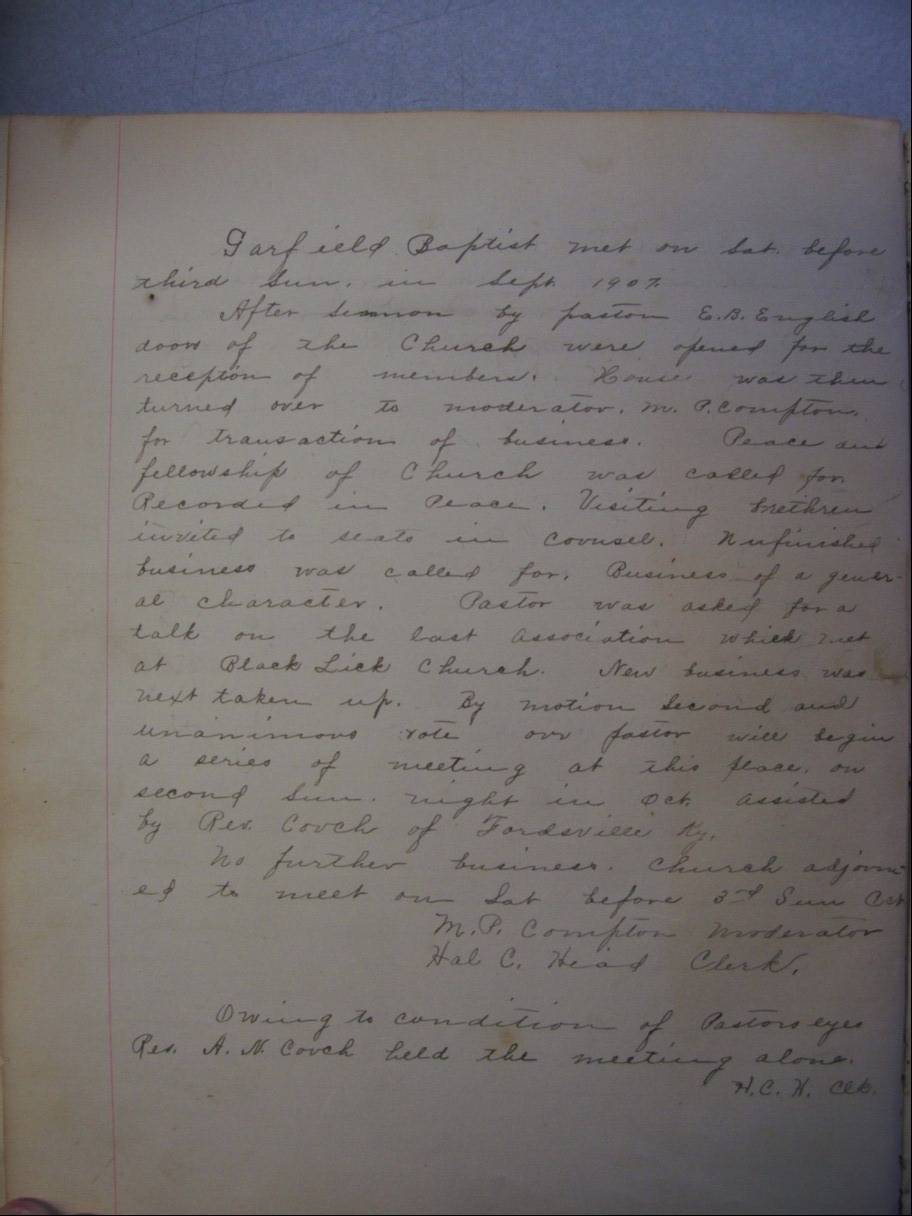 Garfield Baptist met on Sat. before
third Sun. in Sept. 1907.
After sermon by pastor E.B. English
doors of the Church were opened for the
reception of members. House was then
turned over to moderator, M. P. Compton,
for transaction of business. Peace and
fellowship of Church was called for
Recorded in Peace. Visiting brethren
invited to seats in counsel. Unfinished
business was called for. Business of a gener-
al character. Pastor was asked for a
talk on the last association which met
at Black Lick Church. New business was
next taken up. By motion second and
unanimous vote our pastor will begin
a series of meeting at this place, on
second Sun. night in Oct. assisted
by Rev. Couch of Fordsville Ky.
No further business. Church adjourn-
ed to meet on Sat before 3rd Sun Oct
M.P. Compton Moderator
Hal C. Head Clerk.
Owing to condition of Pastors eyes
Rev. A. N. Couch held the meeting alone.
H.C. H. Clk.